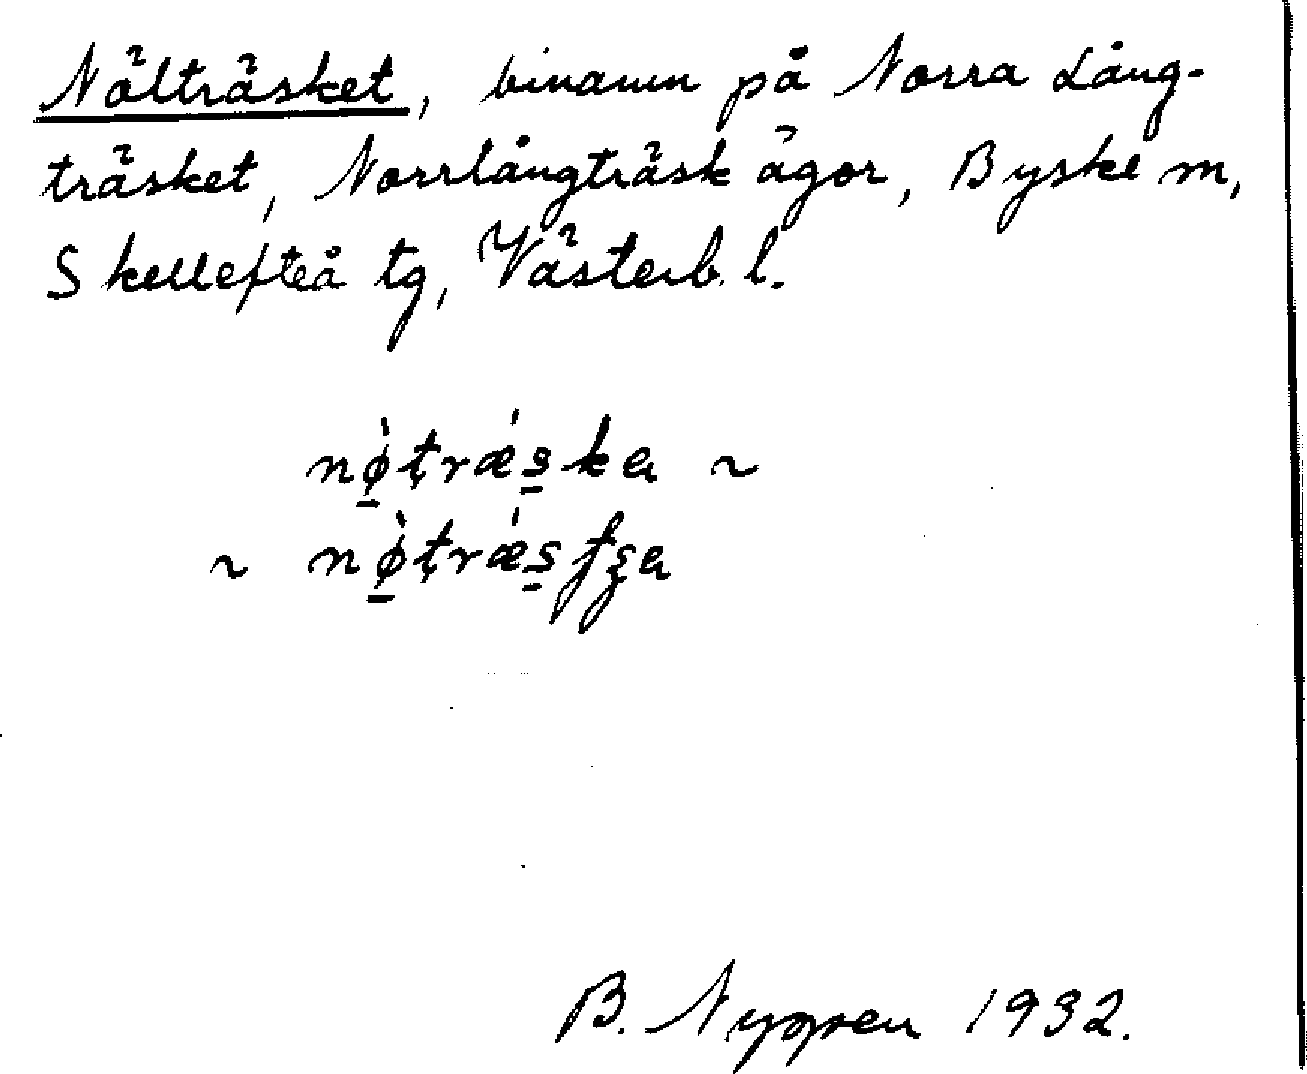 Nölträsket, binamn på Norra Lång-
träsket, Norrlångträsk ägor, Byske sn,
Skellefteå tg, Västerb. l.
nø̠̀ṭrǽs̠ka ~
~ nø̠̀ṭrǽs̠ʃʒa
B. Nygren 1932.